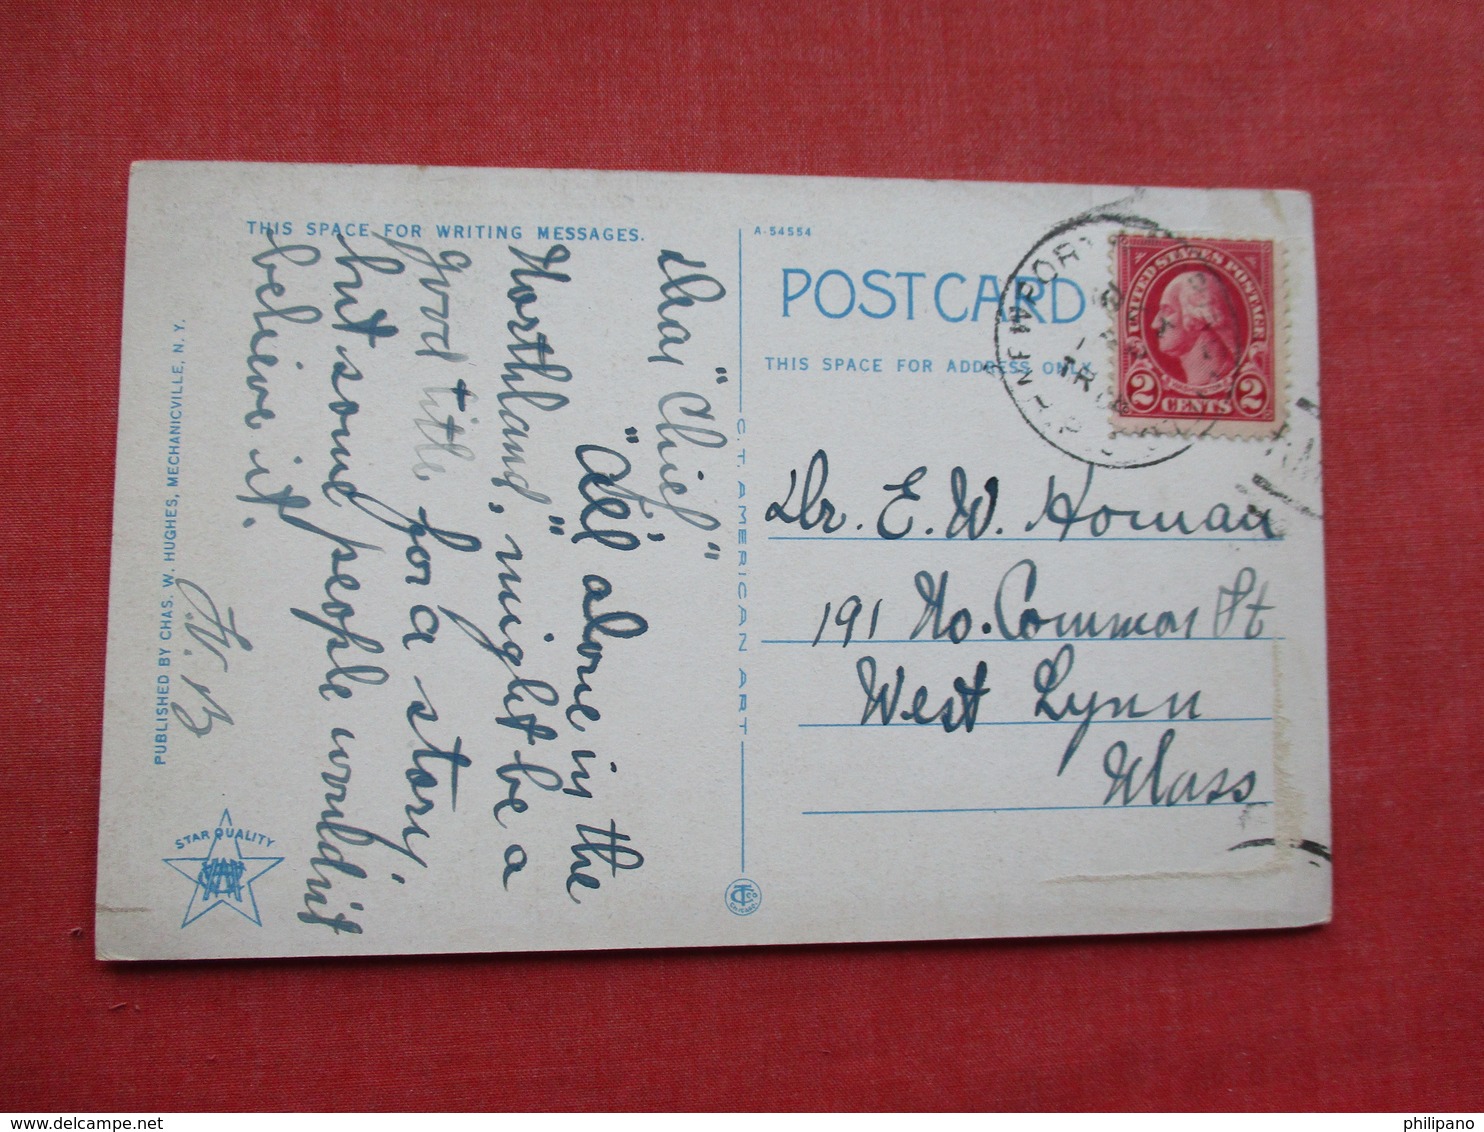 THIS SPACE FOR WRITING MESSAGES.
Dear "Chief"
"All alone in the
Northland", might be a
good title for a story,
but some people wouldn't
believe it.
H. B
PUBLISHED BY CHAS. W. HUGHES, MECHANICVILLE, N. Y.
STAR QUALITY
C.T. AMERICAN ART
A-54554
POST CARD
THIS SPACE FOR ADDRESS ONLY
NEWPORT
UNITED STATES POSTAGE
2 CENTS 2
Dr. E. W. Homan
191 No. Common St
West Lynn
Mass
philipano